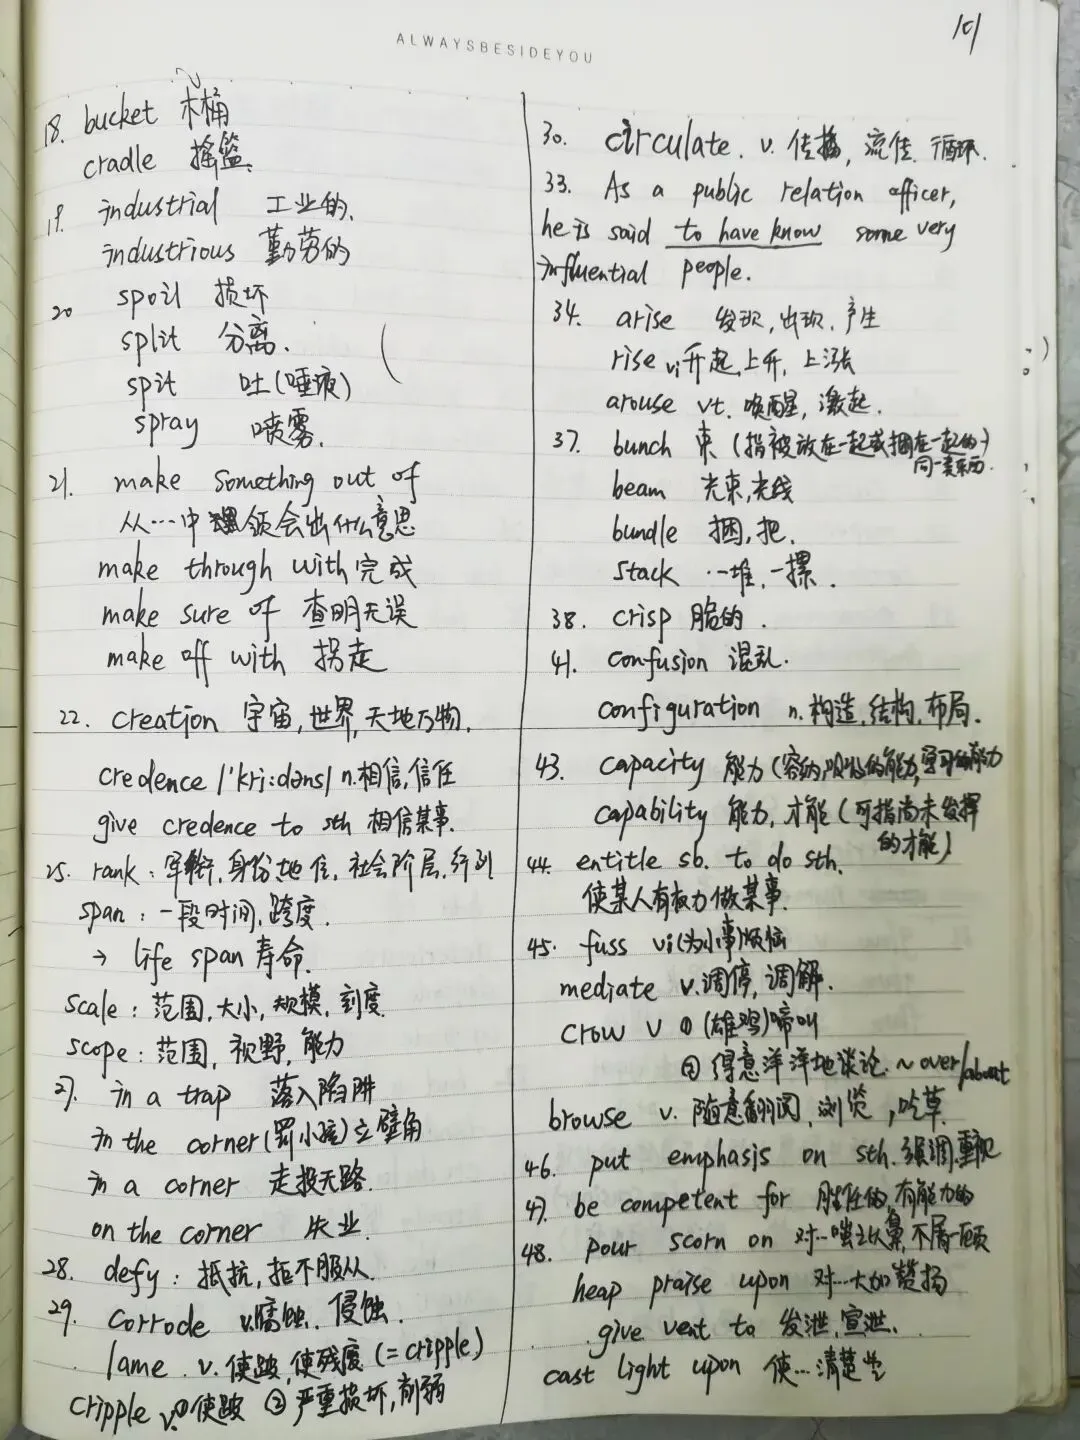 ALWAYSBESIDEYOU
101
18. bucket 木桶
cradle 摇篮.
19. industrial 工业的.
industrious 勤劳的
20 spoil 损坏
split 分离.
spit 吐(唾液)
spray 喷雾.
21. make something out of
从…中 领会出什么意思
make through with 完成
make sure of 查明无误
make off with 拐走
22. creation 宇宙,世界,天地万物.
credence /'kri:dəns/ n.相信,信任
give credence to sth 相信某事.
25. rank: 军衔,身份地位,社会阶层,行列
span: 一段时间,跨度.
→ life span 寿命.
scale: 范围,大小,规模,刻度
scope: 范围,视野,能力
27. in a trap 落入陷阱
in the corner(罚小孩)立壁角
in a corner 走投无路.
on the corner 失业.
28. defy: 抵抗,拒不服从.
29. corrode v.腐蚀.侵蚀.
lame. v.使跛,使残废(=cripple)
cripple v.①使跛 ②严重损坏,削弱
30. circulate. v.传播,流传.循环.
33. As a public relation officer,
he is said to have know some very
influential people.
34. arise 发现,出现.产生
rise vi升起,上升,上涨
arouse vt.唤醒,激起.
37. bunch 束(指被放在一起或捆在一起的
同一类东西.)
beam 光束,光线
bundle 捆,把.
stack 一堆,一摞.
38. crisp 脆的.
41. confusion 混乱.
configuration n.构造,结构,布局.
43. capacity 能力(容纳,吸收的能力,学习的能力
capability 能力,才能(可指尚未发挥
的才能)
44. entitle sb. to do sth.
使某人有权力做某事.
45. fuss vi(为小事)烦恼
mediate v.调停,调解.
crow v ①(雄鸡)啼叫
②得意洋洋地谈论.~over/about
browse v. 随意翻阅,浏览,吃草.
46. put emphasis on sth.强调.重视
47. be competent for 胜任的,有能力的
48. pour scorn on 对…嗤之以鼻,不屑一顾
heap praise upon 对…大加赞扬
give vent to 发泄,宣泄.
cast light upon 使…清楚些